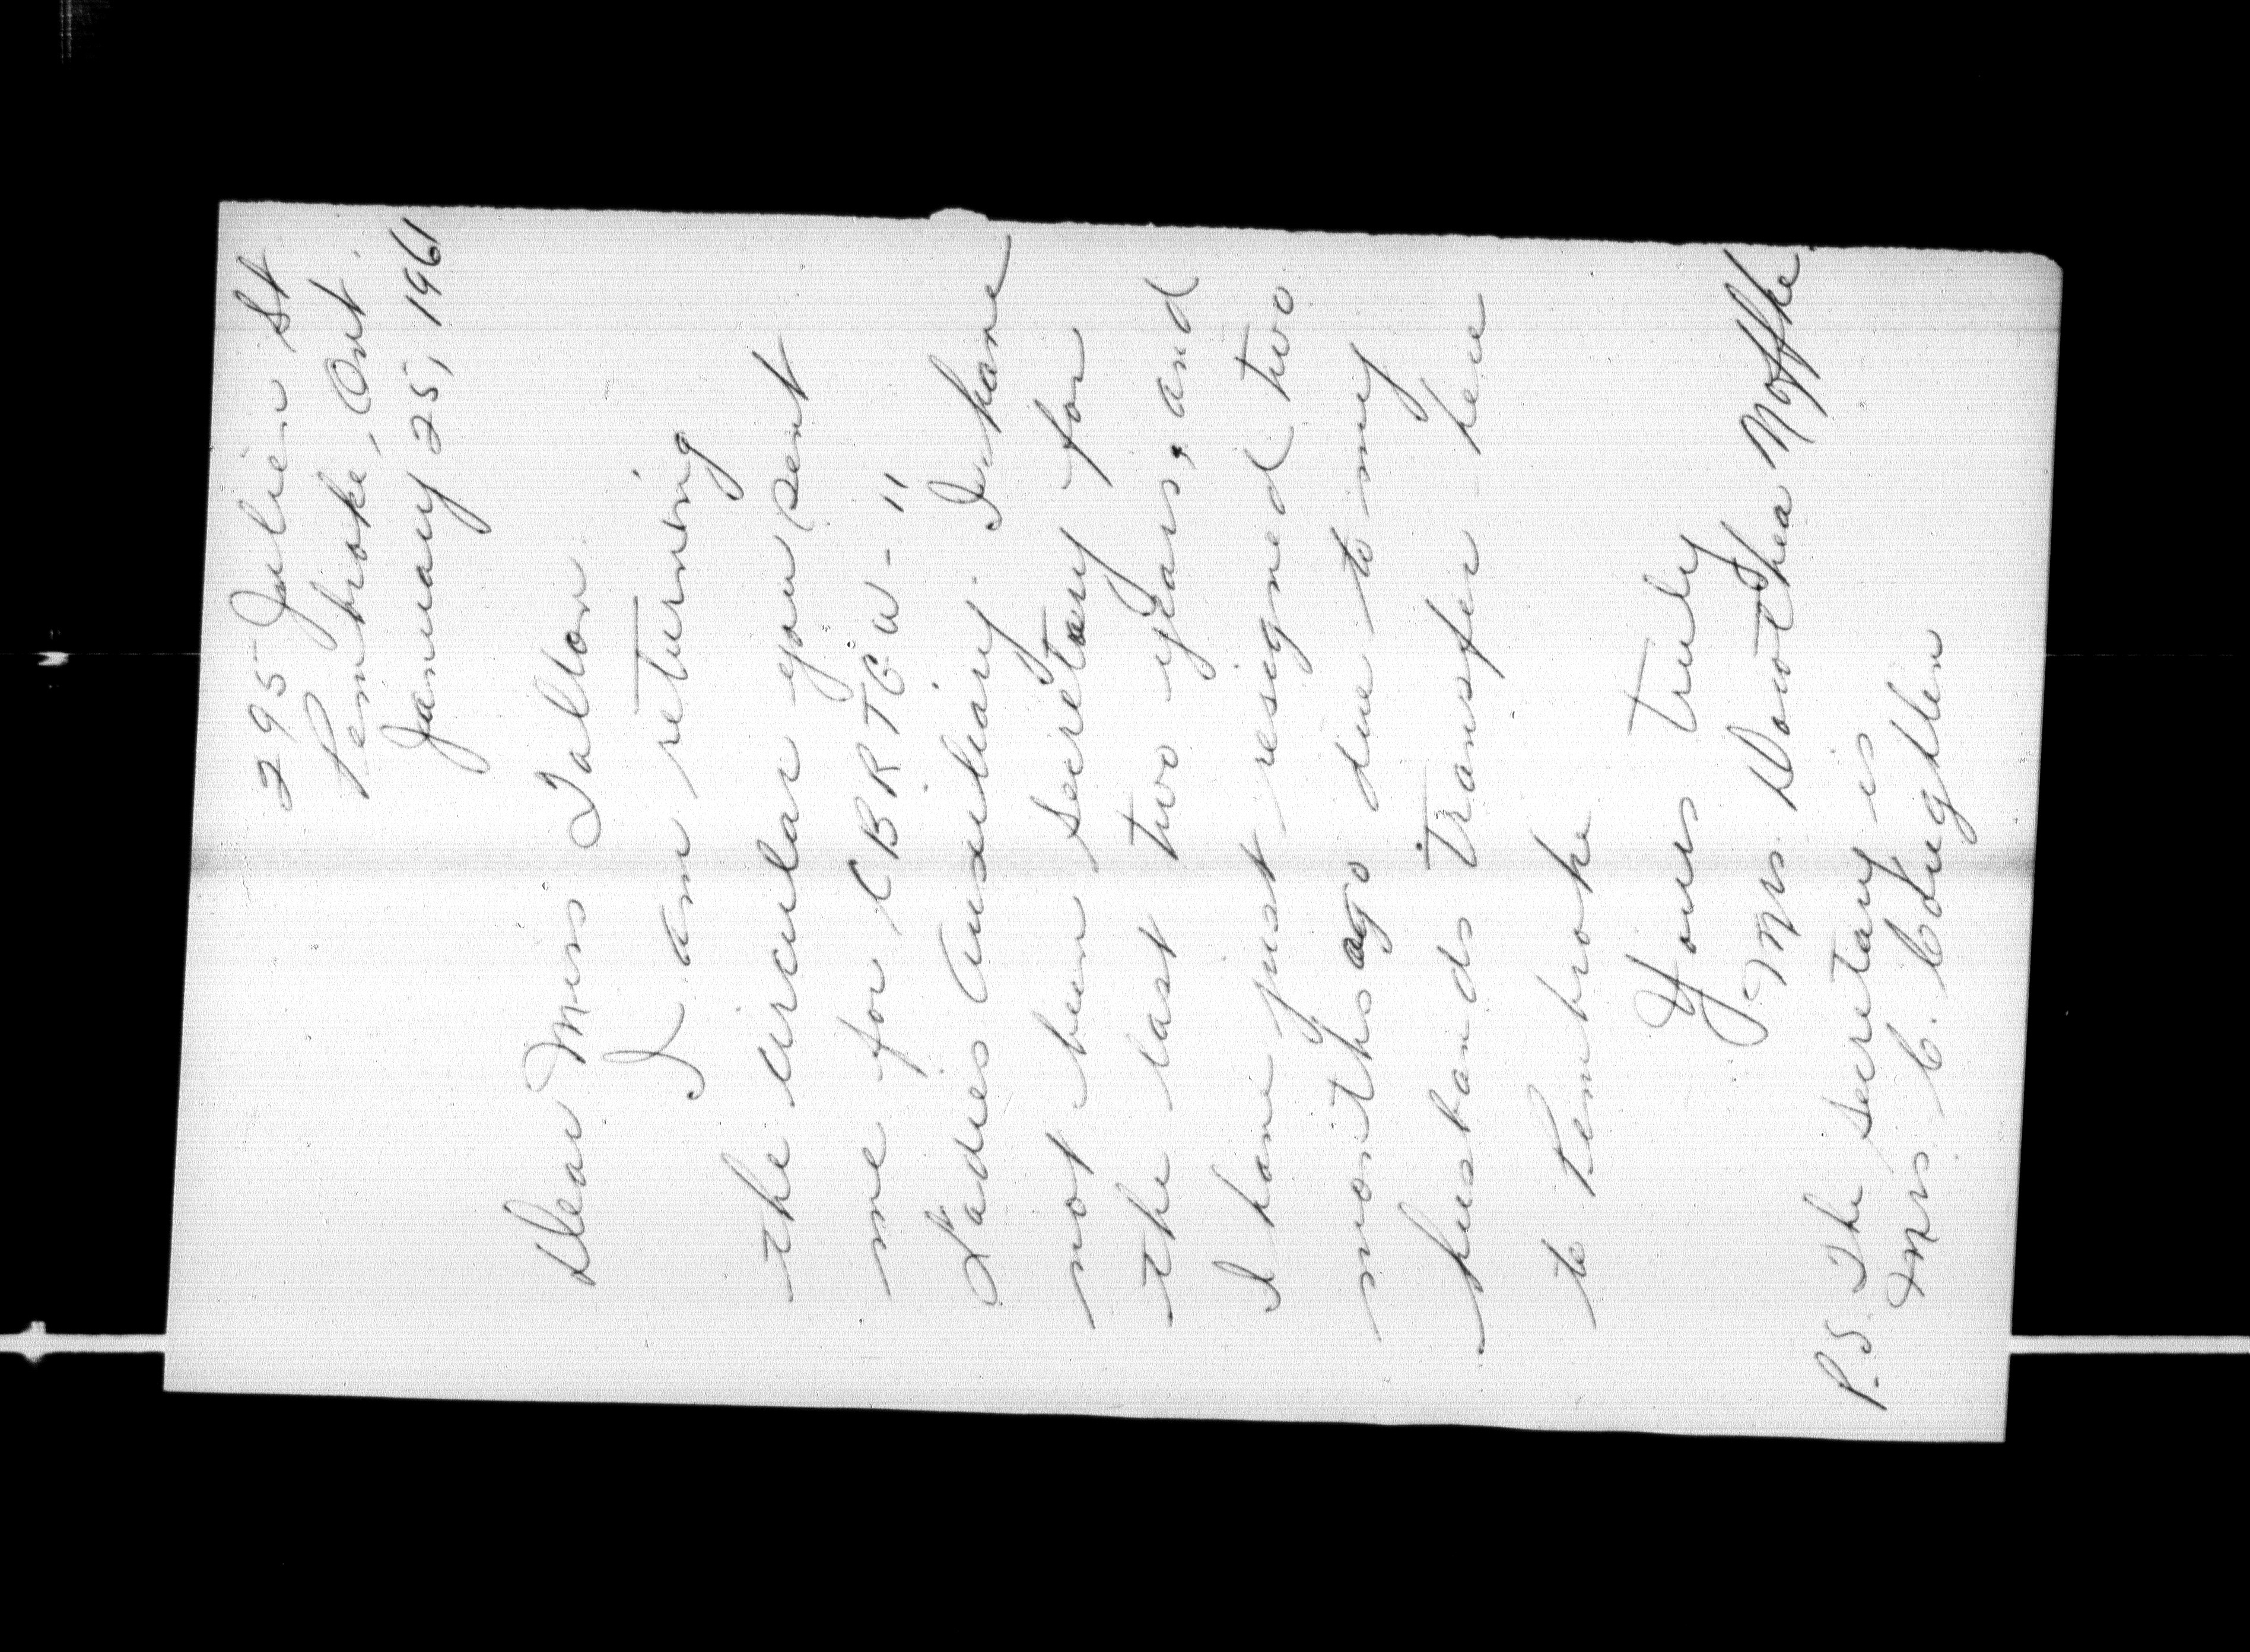 295 Julien St
Pembroke, Ont.
January 25, 1961
Dear Miss Tallon
I am returning
the circular you sent
me for CBRT & W - "
Ladies Auxiliary. I have
not been secretary for
the last two years, and
I have just resigned two
months ago due to my
husbands transfer here
to Pembroke
Yours truly
Mrs. Dorothea Noffke.
P.S. The secretary is
Mrs. C. Coughlin